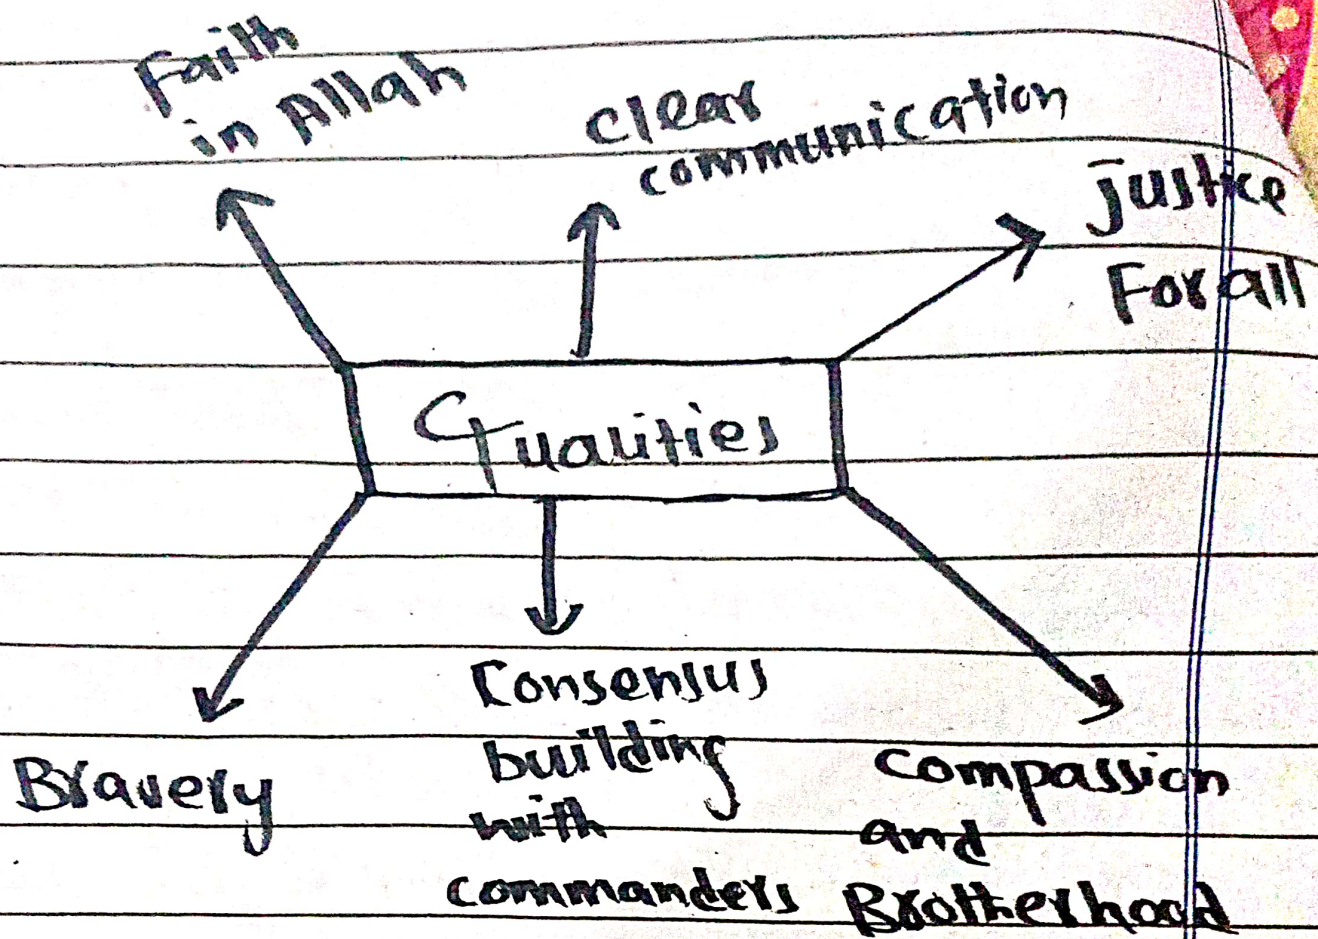 Faith
in Allah
clear
communication
justice
For all
Qualities
Bravery
Consensus
building
with
commanders
compassion
and
Brotherhood